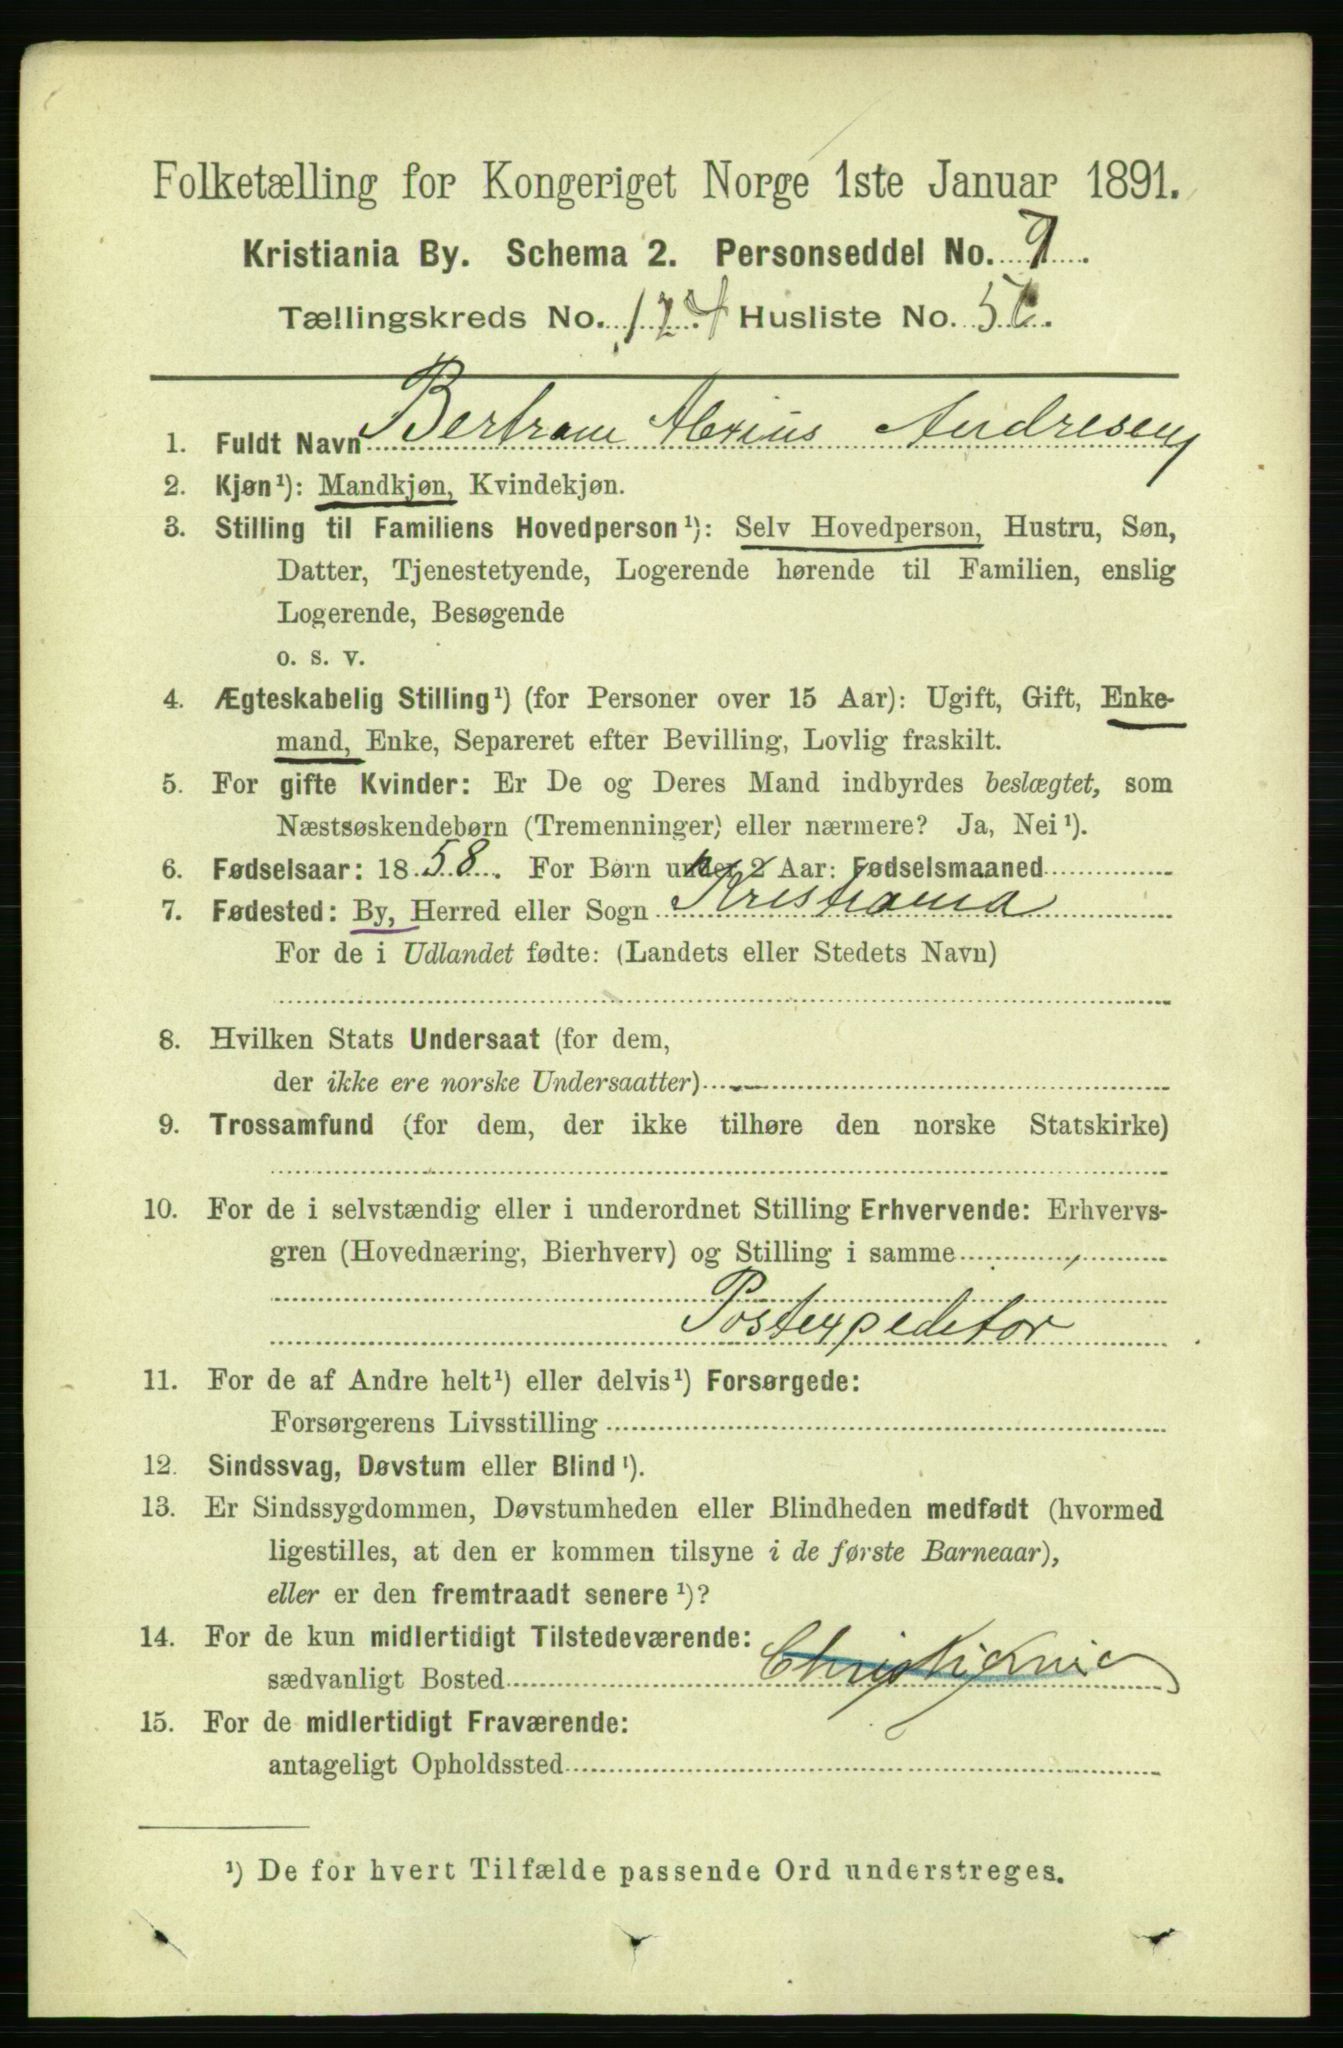 Folketælling for Kongeriget Norge 1ste Januar 1891.
Kristiania By. Schema 2. Personseddel No. 9.
Tællingskreds No. 124 Husliste No.
1. Fuldt Navn Bertram Alexius Andresen
2. Kjøn¹): Mandkjøn, Kvindekjøn.
3. Stilling til Familiens Hovedperson¹): Selv Hovedperson, Hustru, Søn,
Datter, Tjenestetyende, Logerende hørende til Familien, enslig
Logerende, Besøgende
o. s. v.
4. Ægteskabelig Stilling¹) (for Personer over 15 Aar): Ugift, Gift, Enke-
mand, Enke, Separeret efter Bevilling, Lovlig fraskilt.
5. For gifte Kvinder: Er De og Deres Mand indbyrdes beslægtet, som
Næstsøskendebørn (Tremenninger) eller nærmere? Ja, Nei¹).
6. Fødselsaar: 1858. For Børn under 2 Aar: Fødselsmaaned
7. Fødested: By, Herred eller Sogn Kristiania
For de i Udlandet fødte: (Landets eller Stedets Navn)
8. Hvilken Stats Undersaat (for dem,
der ikke ere norske Undersaatter)
9. Trossamfund (for dem, der ikke tilhøre den norske Statskirke)
10. For de i selvstændig eller i underordnet Stilling Erhvervende: Erhvervs-
gren (Hovednæring, Bierhverv) og Stilling i samme
Postexpeditor
11. For de af Andre helt¹) eller delvis¹) Forsørgede:
Forsørgerens Livsstilling
12. Sindssvag, Døvstum eller Blind¹).
13. Er Sindssygdommen, Døvstumheden eller Blindheden medfødt (hvormed
ligestilles, at den er kommen tilsyne i de første Barneaar),
eller er den fremtraadt senere¹)?
14. For de kun midlertidigt Tilstedeværende:
sædvanligt Bosted Christiania
15. For de midlertidigt Fraværende:
antageligt Opholdssted
¹) De for hvert Tilfælde passende Ord understreges.